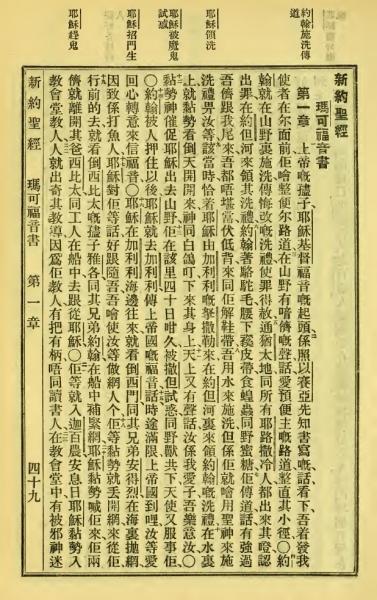 約翰施洗傳道
耶穌領洗
耶穌被魔鬼試惑
耶穌招門生
耶穌趕鬼
新約聖經
瑪可福音書
第一章 上帝嘅孻子耶穌基督福音嘅起頭係照以賽亞先知書寫嘅話看下吾着發我
使者在尔面前佢噲整便尔路道在山野有喑儕嘅聲話愛預便主嘅路道整直其小徑〇約
翰就在山野裏施洗傳悔改嘅洗禮使罪得赦通猶太地同所有耶路撒冷人都出來其證認
出罪在約但河來領其洗禮約翰著駱駝毛腰下皮帶食蝗蟲同野蜜糖佢傳道話有強過
吾儕跟我尾來吾都唔堪當伏低背來同佢解鞋帶吾用水來施洗但係佢就噲用聖神來施
洗禮畀汝等該當時恰着耶穌由加利利嘅拏撒勒來在約但河裏來領約翰嘅洗禮在水裏
上就黏勢看倒天開開來神同白鴿叮下來其身上天上又有聲話汝係我愛子吾樂意汝〇
黏勢神催促耶穌出去山野佢在該里四十日咁久被撒但試惑同野獸共下天使又服事佢
〇約翰被人押住以後耶穌就去加利利傳上帝國嘅福音話時途滿限上帝國到哩汝等愛
回心轉意來信福音〇耶穌在加利利海邊往來就看倒西門同其兄弟安得烈在海裏拋網
因致係打魚人耶穌對佢等話好跟隨吾吾噲使汝等做網人个佢等黏勢就丟開網來從佢
行前的去就看倒西比太嘅孻子雅各同其兄弟約翰在船中補緊網耶穌黏勢喊佢來佢兩
儕就離開其爸西比太同工人在船中去跟從耶穌〇佢等就入迦百農安息日耶穌黏勢入
教會堂教人人就出奇其教導因為佢教人有把有柄唔同讀書人在教會堂中有被邪神迷
新約聖經 瑪可福音書 第一章 四十九